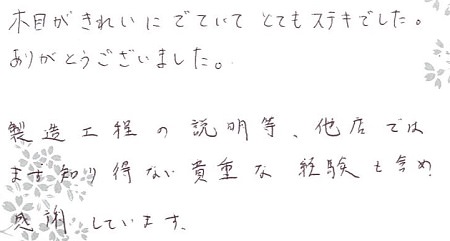 木目がきれいにでていてとてもステキでした。
ありがとうございました。
製造工程の説明等、他店では
まず知り得ない貴重な経験も含め
感謝しています。